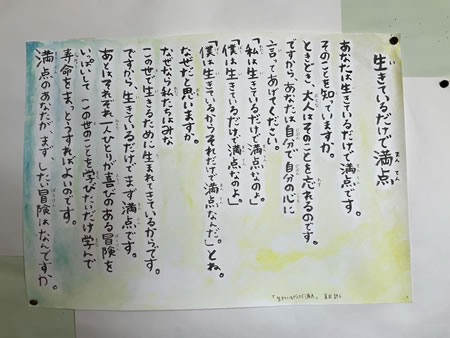 生きているだけで満点
あなたは生きているだけで満点です。
そのことを知っていますか。
ときどき、大人はそのことを忘れるのです。
ですから、あなたは自分で自分の心に
言ってあげてください。
「私は生きているだけで満点なのよ」
「僕は生きているだけで満点なのよ」
「僕は生きているからそれだけで満点なんだ。」とね。
なぜだと思いますか。
なぜなら私たちはみな
この世で生きるために生まれてきているからです。
ですから、生きているだけでまず満点です。
あとはそれぞれ一人ひとりが喜びのある冒険を
いっぱいして この世のことを学びたいだけ学んで
寿命をまっとうすればよいのです。
満点のあなたが、まず、したい冒険はなんですか。
「生きているだけで満点」